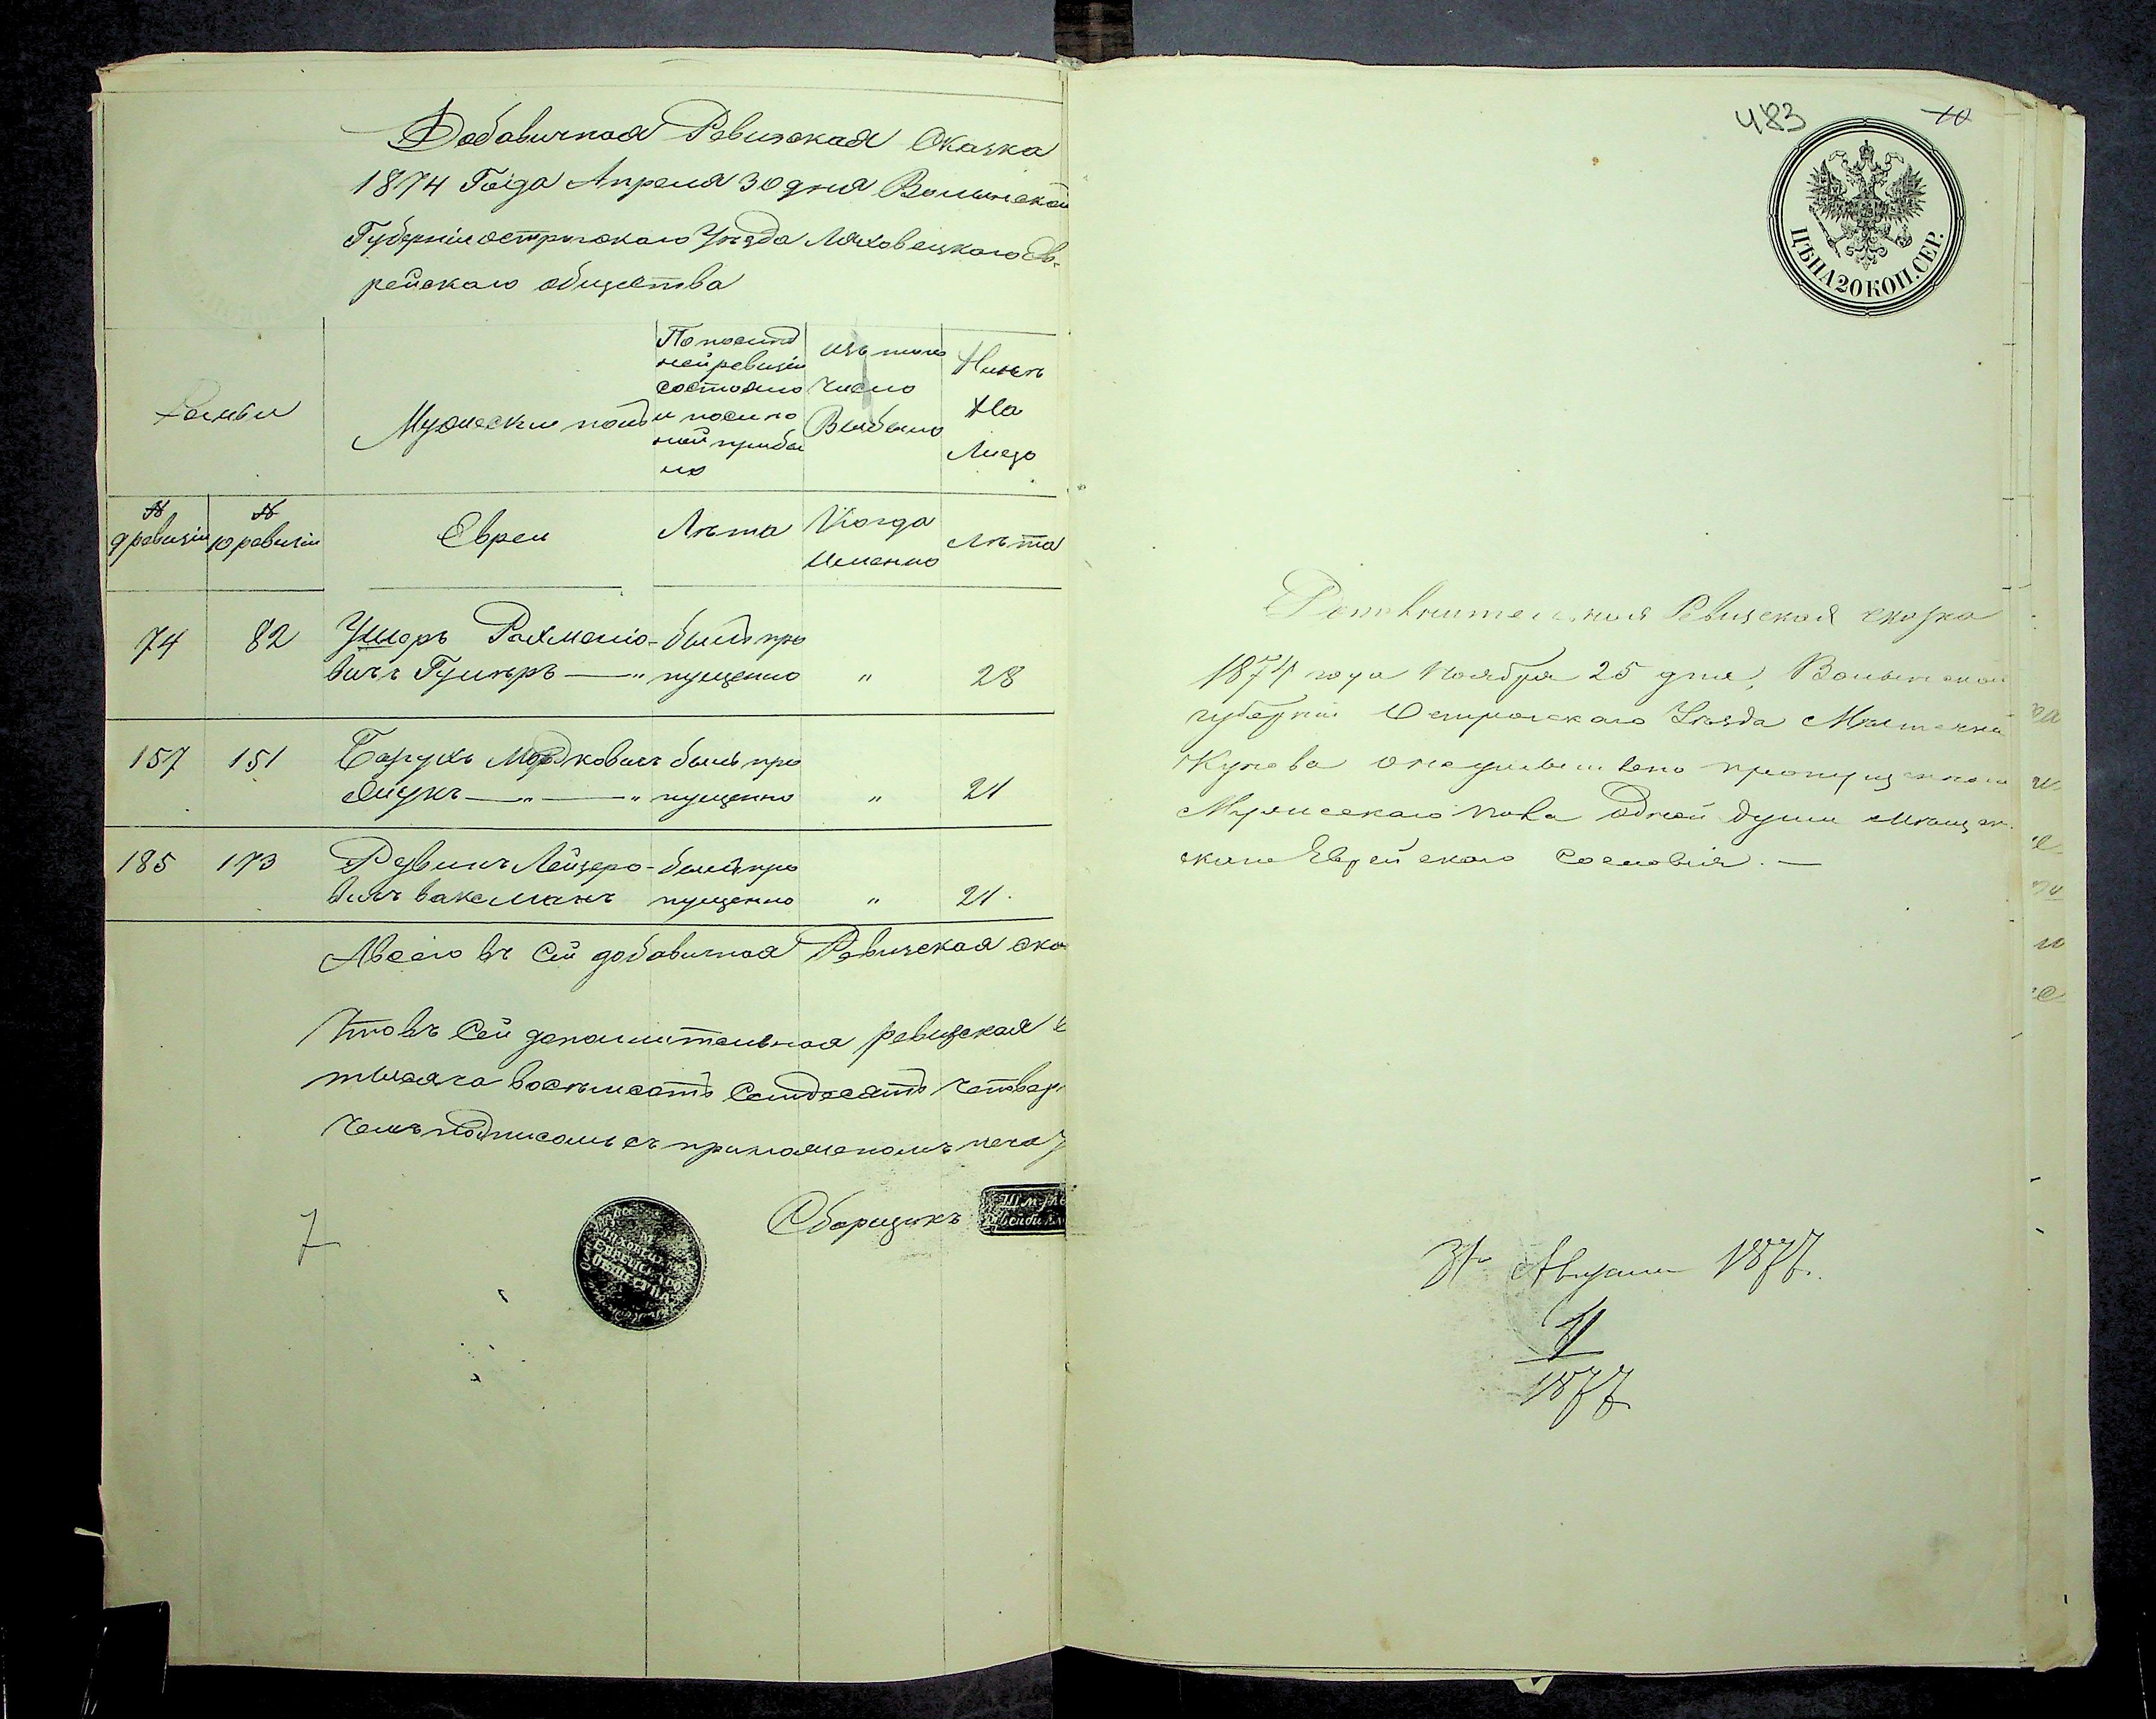 Добавичная Ревизская Сказка
1874 Года Апреля 30 дня Волынской
Губерніи острожскаго Уезда Ляховецкаго Ев-
рейскаго общества
Семьи
Мужеский полъ
По послед
ней ревизіи
состояло
и после
ней прибы
ло
изъ того
число
Выбыло
Ныне
На
Лицо
№
9 ревизіи
№
10 ревизіи
Евреи
Лета
Когда
Именно
Лета
74 82 Ушоръ Рахмеліо- былъ про
вичъ — " пущенно " 28
157 151 Борухъ Мордковичъ былъ про
— " — " пущенно " 21
185 173 Рувинъ Лейзеро- былъ про
вичъ ваксманъ пущенно " 21
Авсего въ Сей добавичная Ревизская ска
Что въ Сей дополнительная ревизская
тысяча восемьсотъ Семдесятъ четвер
чемъ подписомъ съ приложеномъ печа
Сборщикъ
Шмуль
ЕВРЕЙСКАГО
ОБЩЕСТВА
7
483
10
ЦѢНА 20 КОП. СЕР.
Ревизская сказка
1874 года Ноября 25 дня, Волынской
губерніи Острожскаго Уезда Местечка
Кунева о пропущенной
Мужескаго пола одной души мещан-
скаго Еврейскаго Сословія. —
31 Августа 1877.
1877